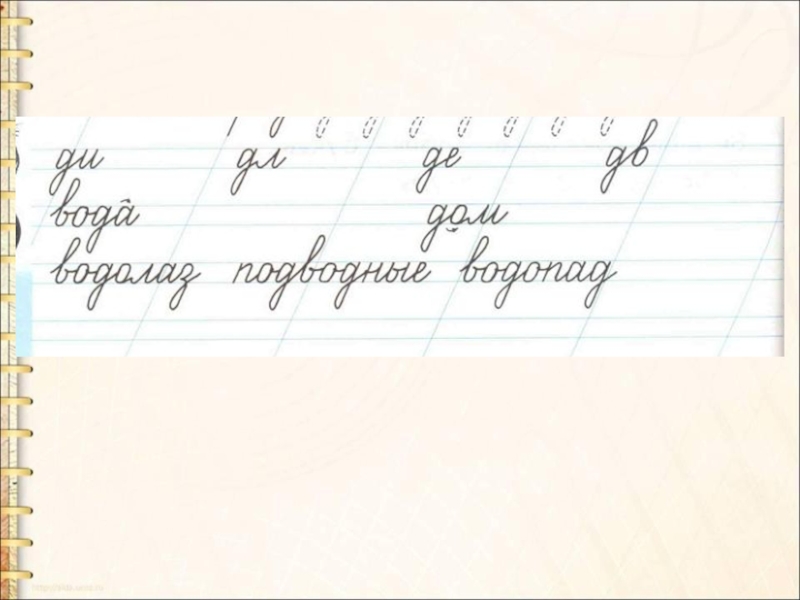 ди дл де дв
вода дом
водолаз подводные водопад